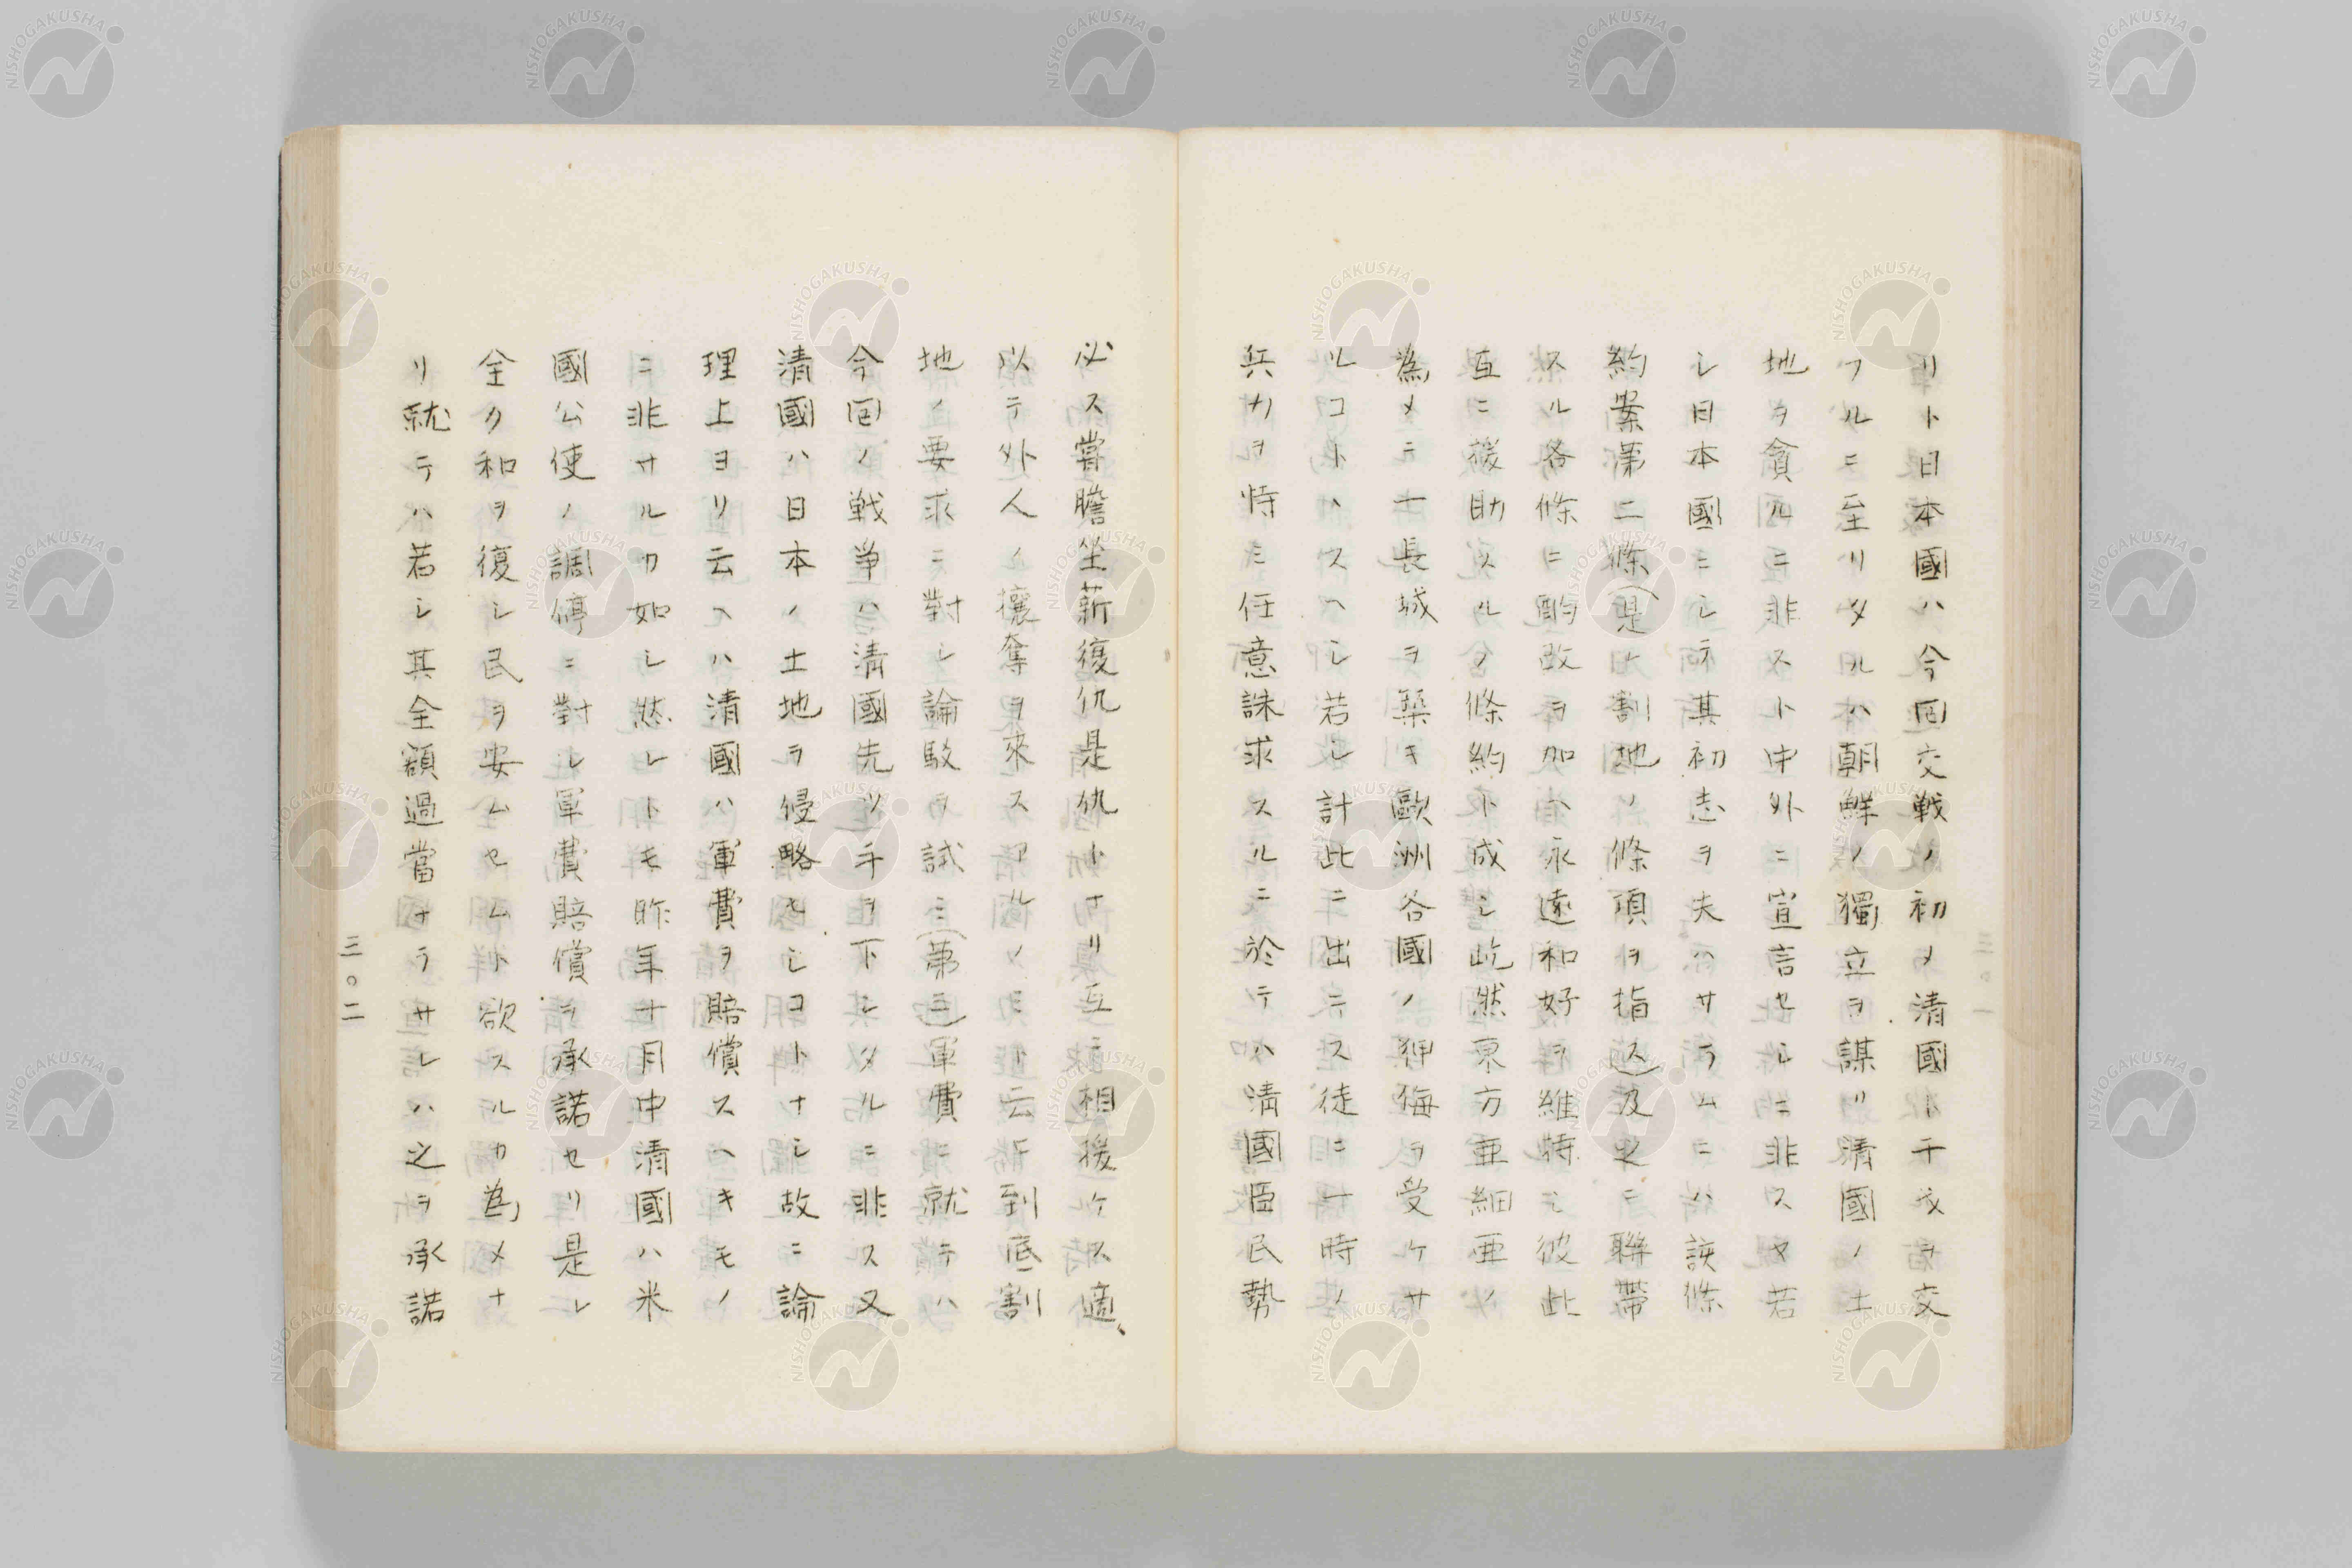 リト日本國ハ今回交戦ノ初メ清國ト干戈ヲ交
フルニ至リタルハ朝鮮ノ獨立ヲ謀リ清國ノ土
地ヲ貪ルニ非ストト中外ニ宣言セシニ非スヤ若
シ日本國ニシテ其初志ヲ失ハサラムニハ該條
約案第二條(是レ割地ノ條項ヲ指ス)及之ニ聯帶
スル各條ニ酌改ヲ加ヘ永遠和好ヲ維持シ彼此
互ニ援助スルノ條約ト成シ屹然東方亜細亜ノ
為メニ一長城ヲ築キ歐洲各國ノ狎侮ヲ受ケサ
ルコトハスヘシ若シ計此ニ出テス徒ニ一時ノ
兵力ヲ恃ミ任意誅求スルニ於テハ清國臣民勢
必ス嘗膽坐薪復仇是仇トナリ互ニ相援ケス適
以テ外人ノ攘奪ヲ來スアルノミト云ヒ到底割
地ノ要求ニ對シ論駁ヲ試ミ(第三)軍費ニ就テハ
今回ノ戦争ハ清國先ツ手ヲ下シタルニ非ス又
清國ハ日本ノ土地ヲ侵略セシコトナシ故ニ論
理上ヨリ云ヘハ清國ハ軍費ヲ賠償スヘキモノ
ニ非サルカ如シ然レトモ昨年十月中清國ハ米
國公使ノ調停ニ對シ軍費賠償ヲ承諾セリ是レ
全ク和ヲ復シ民ヲ安ムセムト欲スルカ為メナ
リ就テハ若シ其全額過當ナラサレハ之ヲ承諾
三〇二
NISHOGAKUSHA